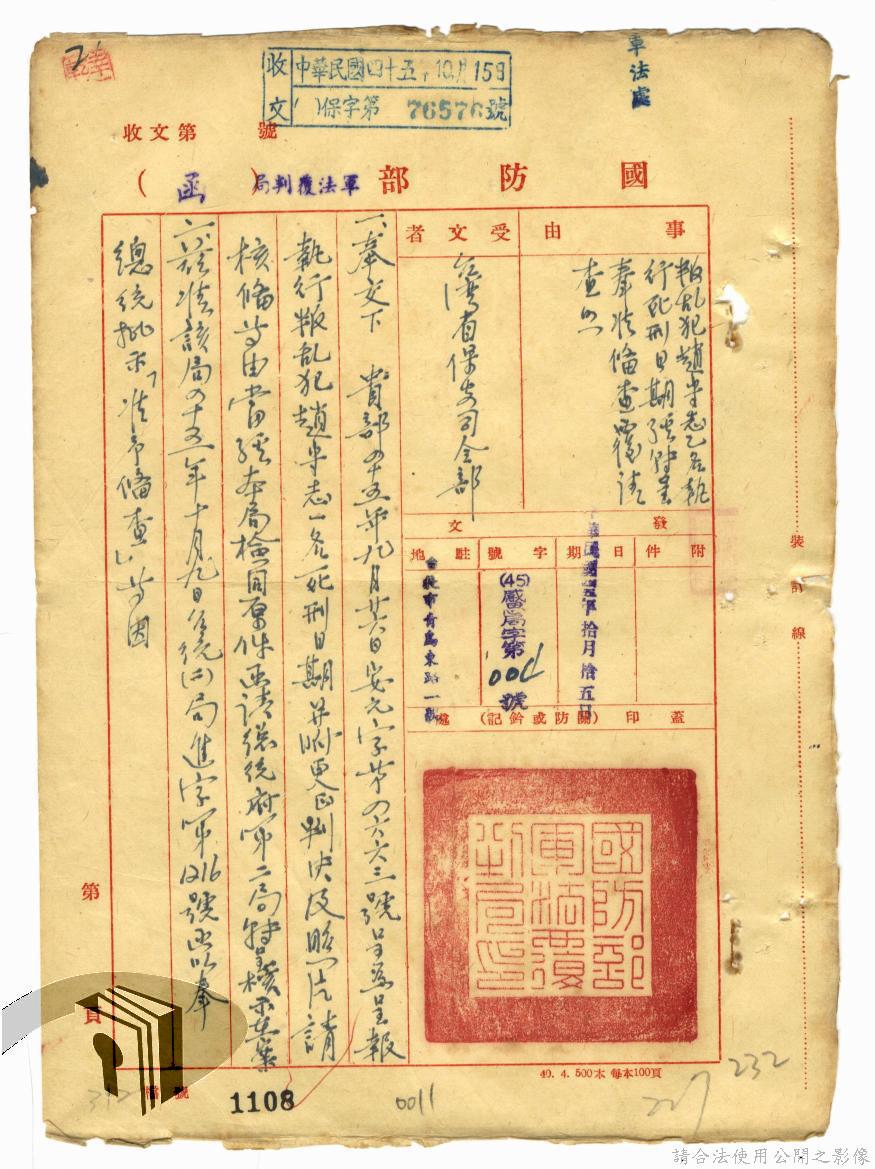 軍法處
收文 中華民國四十五年10月15日
( )保字第 76576號
收文第 號
國防部軍法覆判局(函)
事由
叛乱犯趙守志乙名執
行死刑日期經轉呈
奉准備查覆請
查照
受文者
台灣省保安司令部
發文
附件
日期
中華民國肆拾五年拾月拾五日
字號
(45)盛局字第
號
駐地
台北市青島東路一號
蓋印(關防或鈐記)處
國防部軍法覆判局印
一、奉交下 貴部四十五年九月廿六日安元字第四六六三號呈為呈報
執行叛乱犯趙守志一名死刑日期并附更正判决及照片請
核備等由當經本局檢同原件函請總統府第二局轉呈核示在案
二、茲准該局四十五年十月九日台統(二)局進字第1216號函以奉
總統批示「准予備查」等因
裝訂線
第
頁
檔號
1108
0011
49. 4. 500本 每本100頁
227
232
請合法使用公開之影像